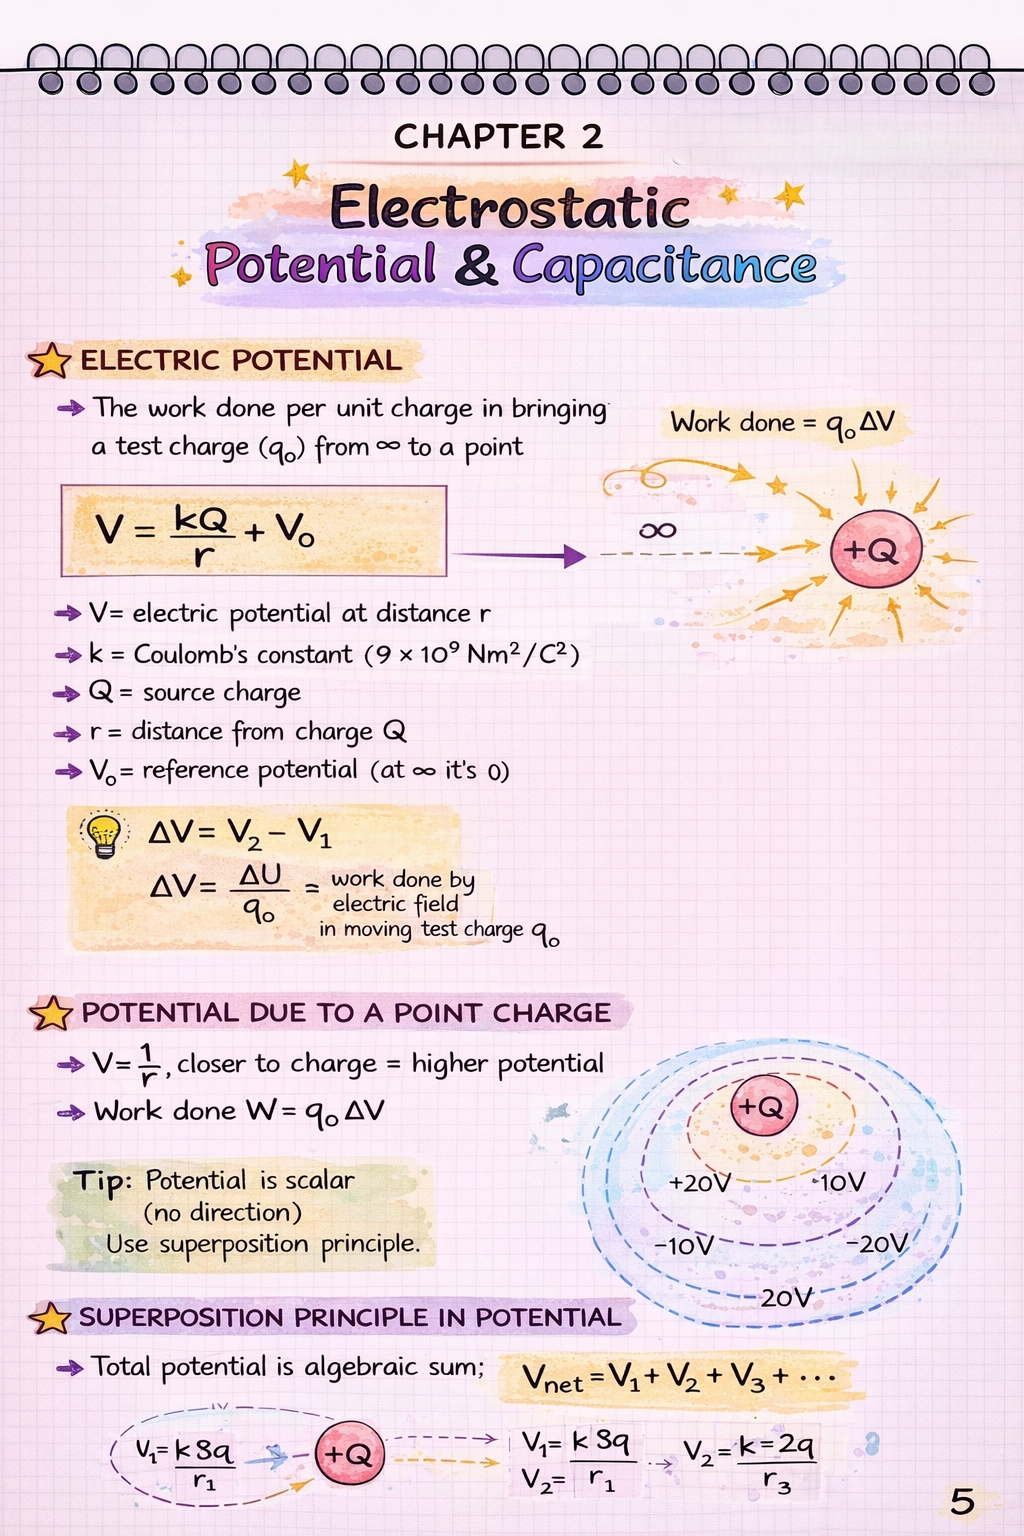 CHAPTER 2
Electrostatic
Potential & Capacitance
ELECTRIC POTENTIAL
→ The work done per unit charge in bringing
a test charge (q₀) from ∞ to a point
Work done = q₀ΔV
V = kQ/r + V₀
∞
+Q
→ V= electric potential at distance r
→ k = Coulomb's constant (9 × 10⁹ Nm²/C²)
→ Q = source charge
→ r = distance from charge Q
→ V₀= reference potential (at ∞ it's 0)
ΔV= V₂ – V₁
ΔV= ΔU/q₀ = work done by
electric field
in moving test charge q₀
POTENTIAL DUE TO A POINT CHARGE
→ V= 1/r, closer to charge = higher potential
→ Work done W = q₀ΔV
+Q
+20V -10V
-10V -20V
20V
Tip: Potential is scalar
(no direction)
Use superposition principle.
SUPERPOSITION PRINCIPLE IN POTENTIAL
→ Total potential is algebraic sum;
Vnet = V₁ + V₂ + V₃ + ···
V₁= k 8q/r₁
+Q
V₁= k 8q/r₁
V₂=
V₂ = k=2q/r₃
5